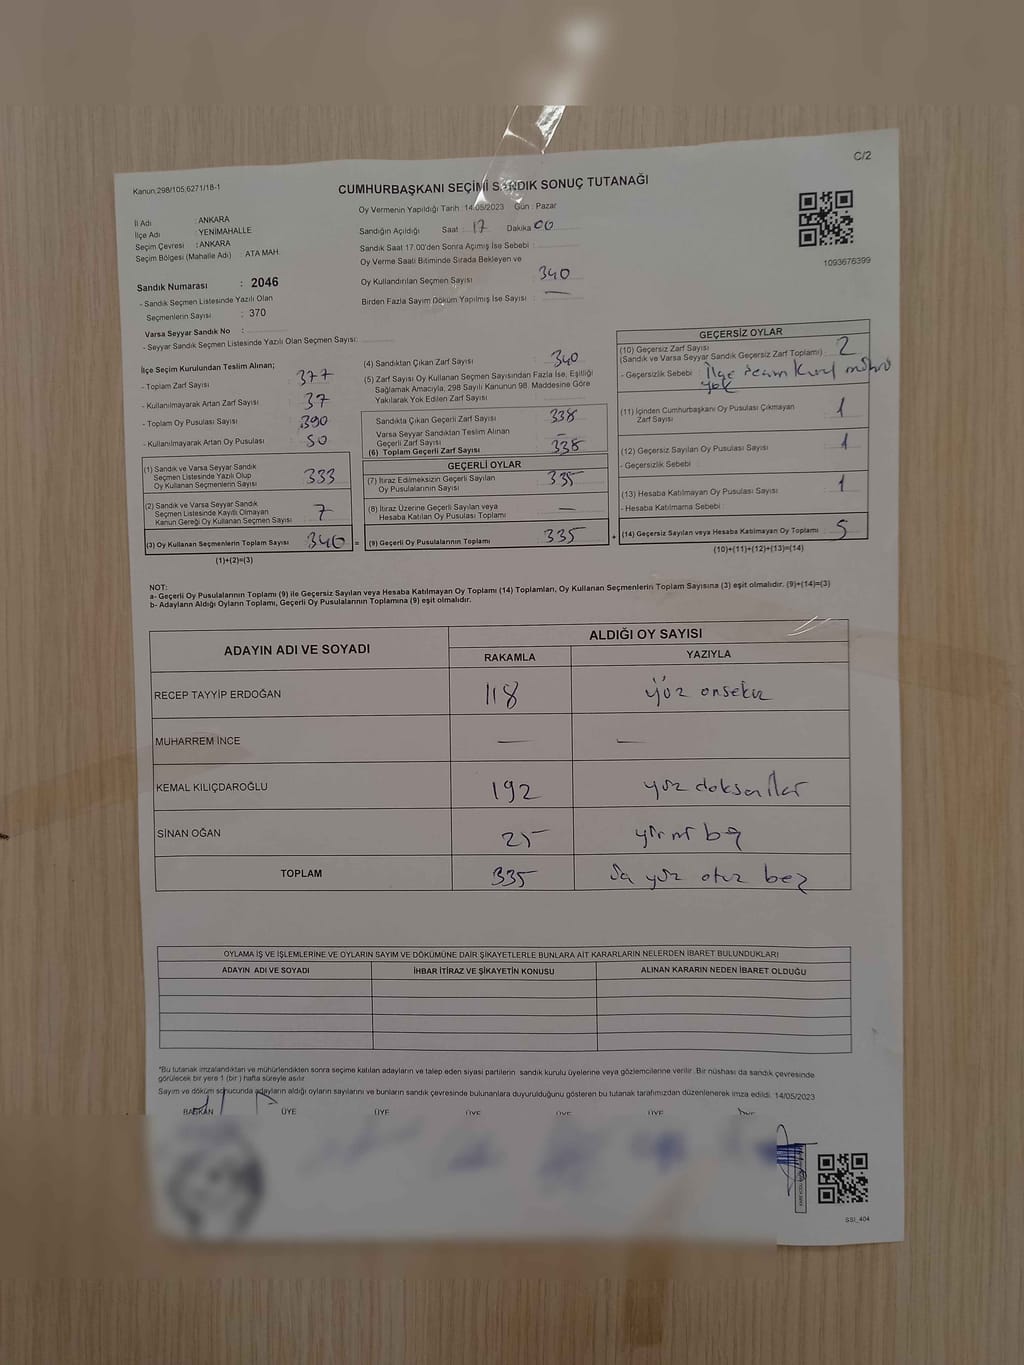 C/2
Kanun,298/105,6271/18-1
CUMHURBAŞKANI SEÇİMİ SANDIK SONUÇ TUTANAĞI
İl Adı : ANKARA
İlçe Adı : YENİMAHALLE
Seçim Çevresi : ANKARA
Seçim Bölgesi (Mahalle Adı) : ATA MAH.
Sandık Numarası : 2046
- Sandık Seçmen Listesinde Yazılı Olan
Seçmenlerin Sayısı : 370
Varsa Seyyar Sandık No :
- Seyyar Sandık Seçmen Listesinde Yazılı Olan Seçmen Sayısı:
Oy Vermenin Yapıldığı Tarih : 14/05/2023 Gün : Pazar
Sandığın Açıldığı Saat 17 Dakika 00
Sandık Saat 17.00'den Sonra Açımış İse Sebebi :
Oy Verme Saati Bitiminde Sırada Bekleyen ve
Oy Kullandırılan Seçmen Sayısı 340
Birden Fazla Sayım Döküm Yapılmış İse Sayısı : —
1093676399
İlçe Seçim Kurulundan Teslim Alınan;
- Toplam Zarf Sayısı 377
- Kullanılmayarak Artan Zarf Sayısı 37
- Toplam Oy Pusulası Sayısı 390
- Kullanılmayarak Artan Oy Pusulası 50
(1) Sandık ve Varsa Seyyar Sandık
Seçmen Listesinde Yazılı Olup
Oy Kullanan Seçmenlerin Sayısı 333
(2) Sandık ve Varsa Seyyar Sandık
Seçmen Listesinde Kayıtlı Olmayan
Kanun Gereği Oy Kullanan Seçmen Sayısı 7
(3) Oy Kullanan Seçmenlerin Toplam Sayısı 340 =
(1)+(2)=(3)
(4) Sandıktan Çıkan Zarf Sayısı 340
(5) Zarf Sayısı Oy Kullanan Seçmen Sayısından Fazla İse, Eşitliği
Sağlamak Amacıyla, 298 Sayılı Kanunun 98. Maddesine Göre
Yakılarak Yok Edilen Zarf Sayısı
Sandıkta Çıkan Geçerli Zarf Sayısı 338
Varsa Seyyar Sandıktan Teslim Alınan
Geçerli Zarf Sayısı —
(6) Toplam Geçerli Zarf Sayısı 338
GEÇERLİ OYLAR
(7) İtiraz Edilmeksizin Geçerli Sayılan
Oy Pusulalarının Sayısı 335
(8) İtiraz Üzerine Geçerli Sayılan veya
Hesaba Katılan Oy Pusulası Toplamı —
(9) Geçerli Oy Pusulalarının Toplamı 335 +
GEÇERSİZ OYLAR
(10) Geçersiz Zarf Sayısı
(Sandık ve Varsa Seyyar Sandık Geçersiz Zarf Toplamı) 2
- Geçersizlik Sebebi : İlçe seçim kurul mührü
yok
(11) İçinden Cumhurbaşkanı Oy Pusulası Çıkmayan
Zarf Sayısı 1
(12) Geçersiz Sayılan Oy Pusulası Sayısı 1
- Geçersizlik Sebebi :
(13) Hesaba Katılmayan Oy Pusulası Sayısı 1
- Hesaba Katılmama Sebebi :
(14) Geçersiz Sayılan veya Hesaba Katılmayan Oy Toplamı 5
(10)+(11)+(12)+(13)=(14)
NOT:
a- Geçerli Oy Pusulalarının Toplamı (9) ile Geçersiz Sayılan veya Hesaba Katılmayan Oy Toplamı (14) Toplamları, Oy Kullanan Seçmenlerin Toplam Sayısına (3) eşit olmalıdır. (9)+(14)=(3)
b- Adayların Aldığı Oyların Toplamı, Geçerli Oy Pusulalarının Toplamına (9) eşit olmalıdır.
ADAYIN ADI VE SOYADI
ALDIĞI OY SAYISI
RAKAMLA YAZIYLA
RECEP TAYYİP ERDOĞAN 118 yüz onsekiz
MUHARREM İNCE — —
KEMAL KILIÇDAROĞLU 192 yüz doksan iki
SİNAN OĞAN 25 yirmi beş
TOPLAM 335 üç yüz otuz beş
OYLAMA İŞ VE İŞLEMLERİNE VE OYLARIN SAYIM VE DÖKÜMÜNE DAİR ŞİKAYETLERLE BUNLARA AİT KARARLARIN NELERDEN İBARET BULUNDUKLARI
ADAYIN ADI VE SOYADI İHBAR İTİRAZ VE ŞİKAYETİN KONUSU ALINAN KARARIN NEDEN İBARET OLDUĞU
*Bu tutanak imzalandıktan ve mühürlendikten sonra seçime katılan adayların ve talep eden siyasi partilerin sandık kurulu üyelerine veya gözlemcilerine verilir. Bir nüshası da sandık çevresinde
görülecek bir yere 1 (bir) hafta süreyle asılır
Sayım ve döküm sonucunda adayların aldığı oyların sayılarını ve bunların sandık çevresinde bulunanlara duyurulduğunu gösteren bu tutanak tarafımızdan düzenlenerek imza edildi. 14/05/2023
BAŞKAN ÜYE ÜYE ÜYE ÜYE ÜYE ÜYE
SSİ_404